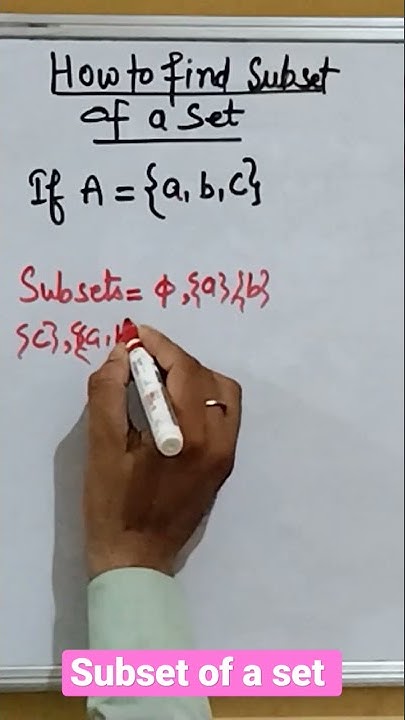 How to find Subset
of a Set
If A = {a, b, c}
Subsets = ϕ, {a} {b}
{c}, {a, b
Subset of a set